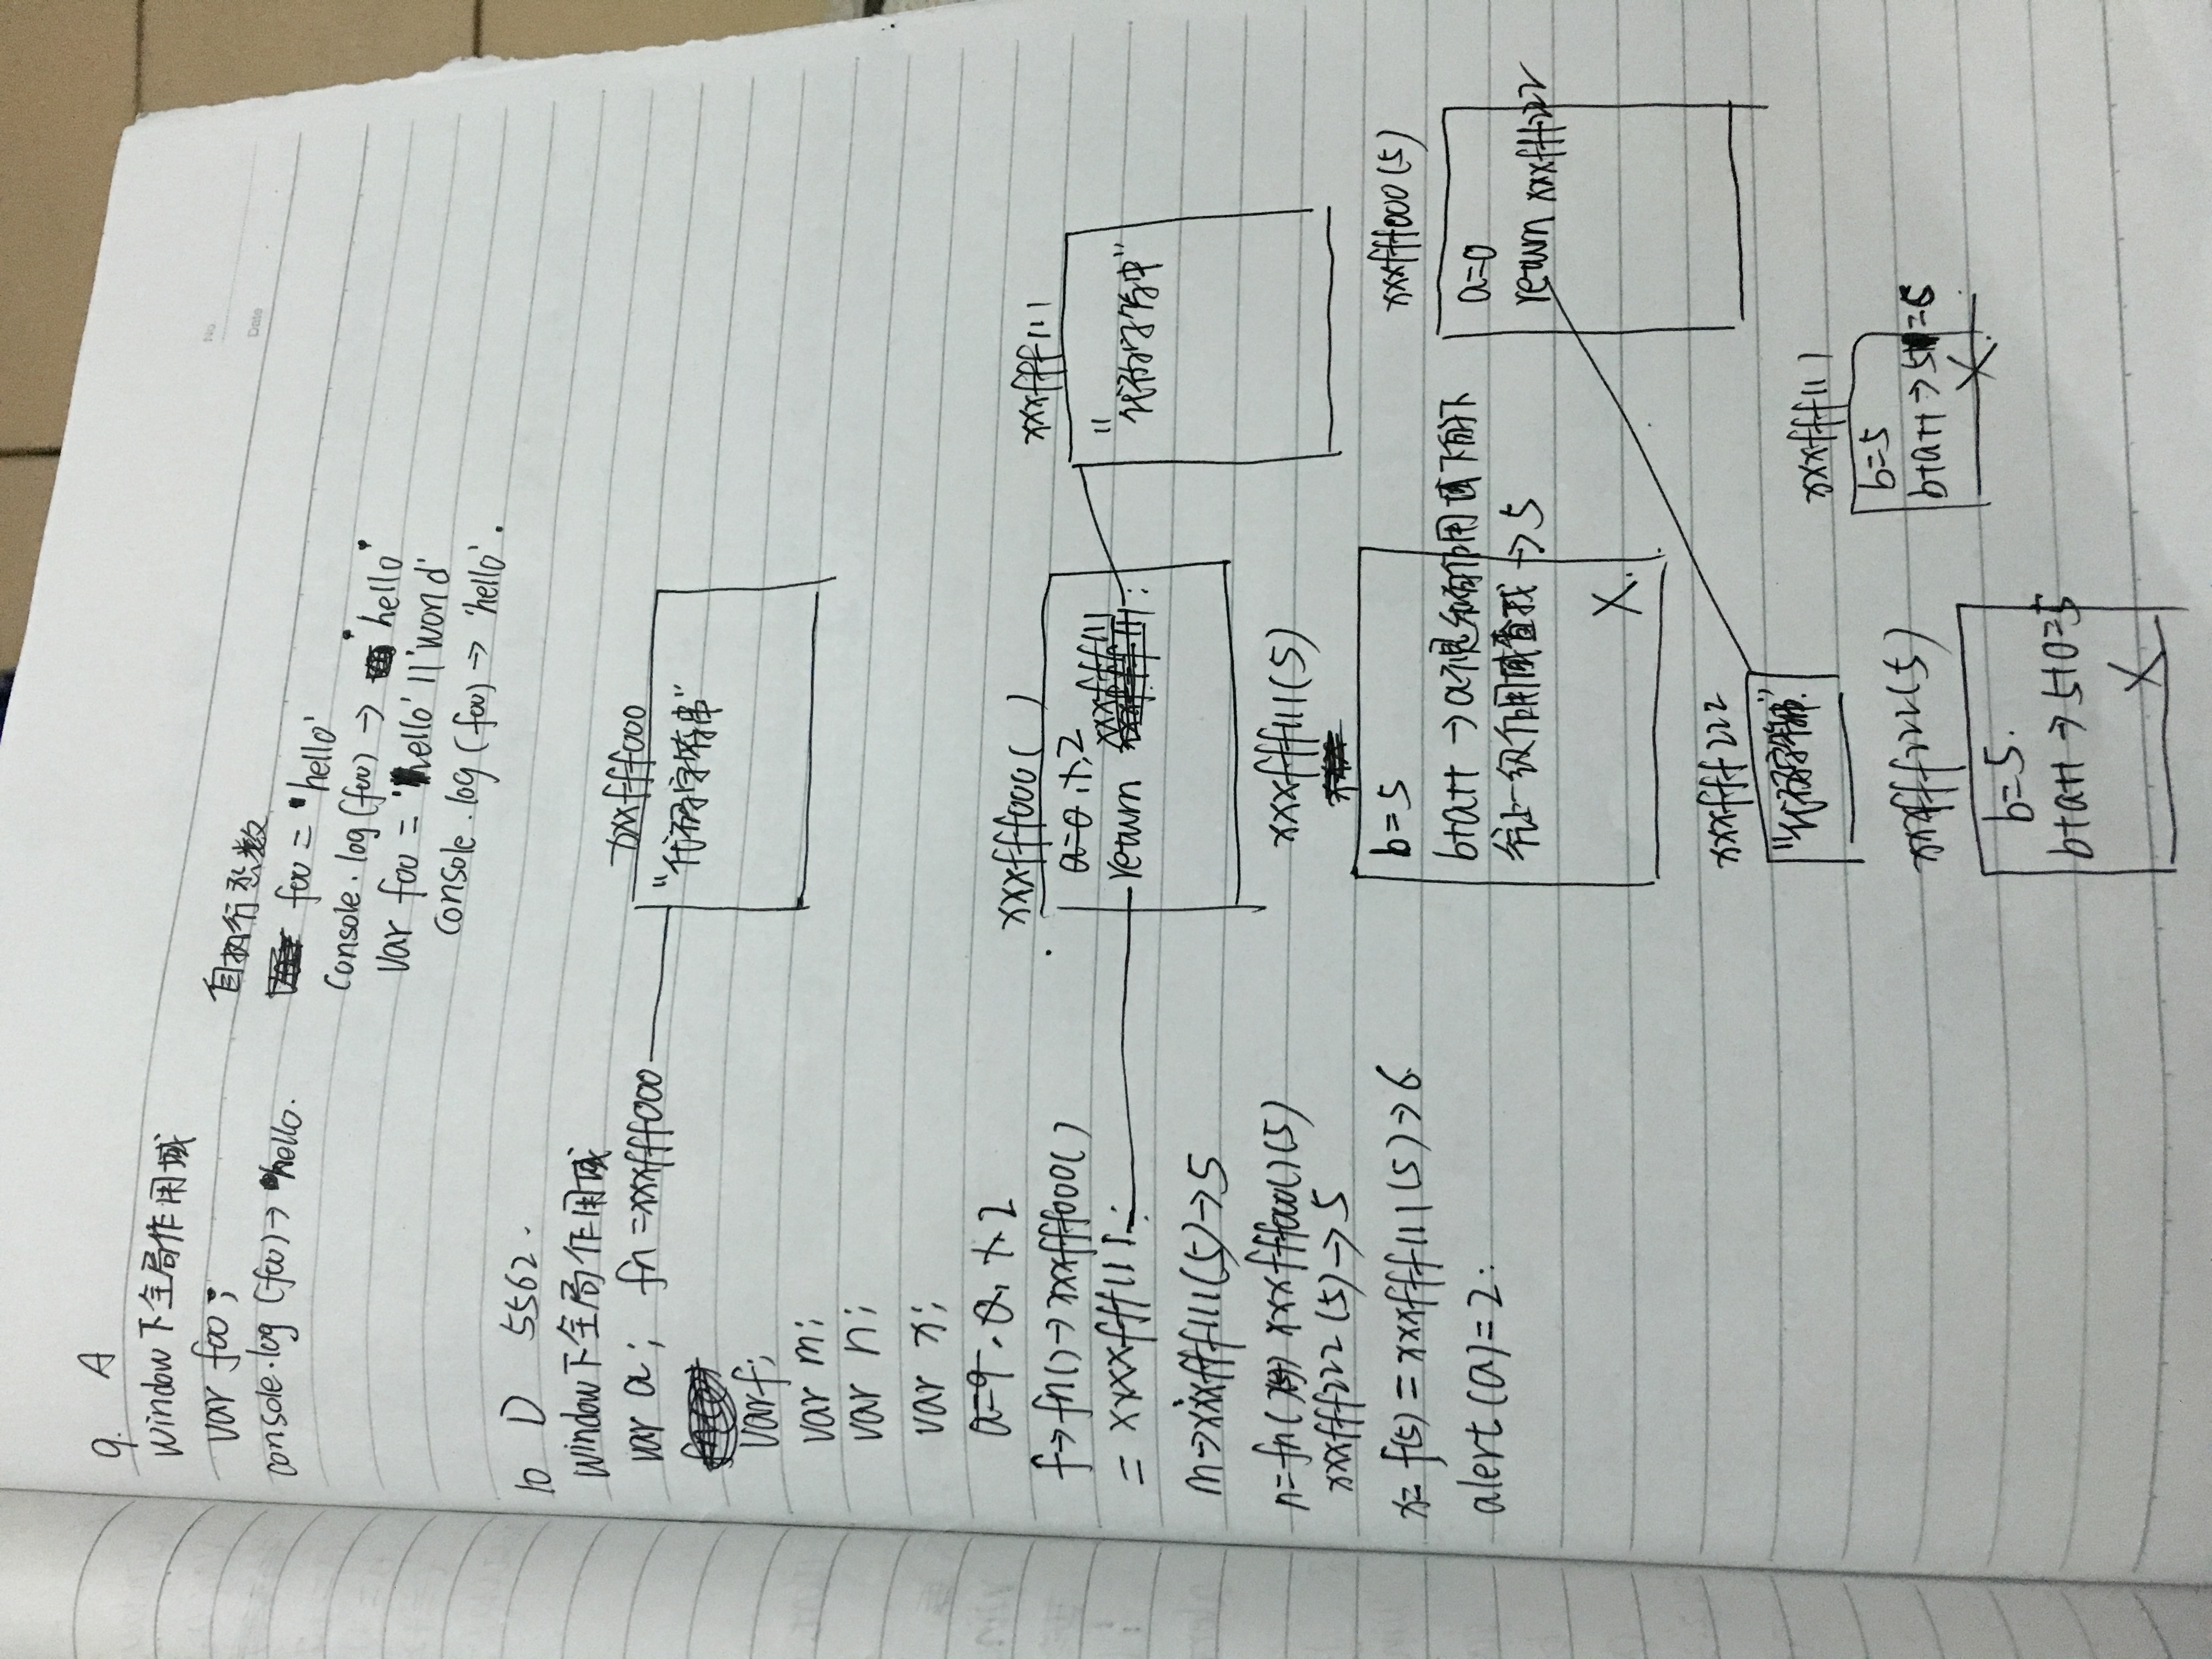 9. A
window下全局作用域
var foo;
console.log(foo)→ 'hello.
自执行函数
foo = 'hello'
console.log(foo) → 'hello'
var foo = 'hello' || 'world'
console.log(foo) → 'hello'.
10 D 5562.
window下全局作用域
var a; fn=xxxfff000
var f;
var m;
var n;
var x;
a=9,0,1,2
f→fn()→xxxfff000()
= xxxxfff111;
m→xxxfff111(5)→5
n=fn( ) xxxfff000()(5)
xxxfff222(5)→5
x= f(5) = xxxfff111(5)→6
alert(a)=2;
xxxfff000
"代码字符串"
xxxfff000( )
a=0,1,2
return xxxfff111
xxxfff111
"代码字符串"
xxxfff111(5)
b=5
b+a++ →a不是私有作用域下的
往上一级作用域查找→5
X.
xxxfff000(5)
a=0
return xxxfff222
xxxfff222
"代码字符串"
xxxfff222(5)
b=5.
b+a++ →5+0=5
X
xxxfff111
b=5
b+a++→5+1=6
X.
No.
Date